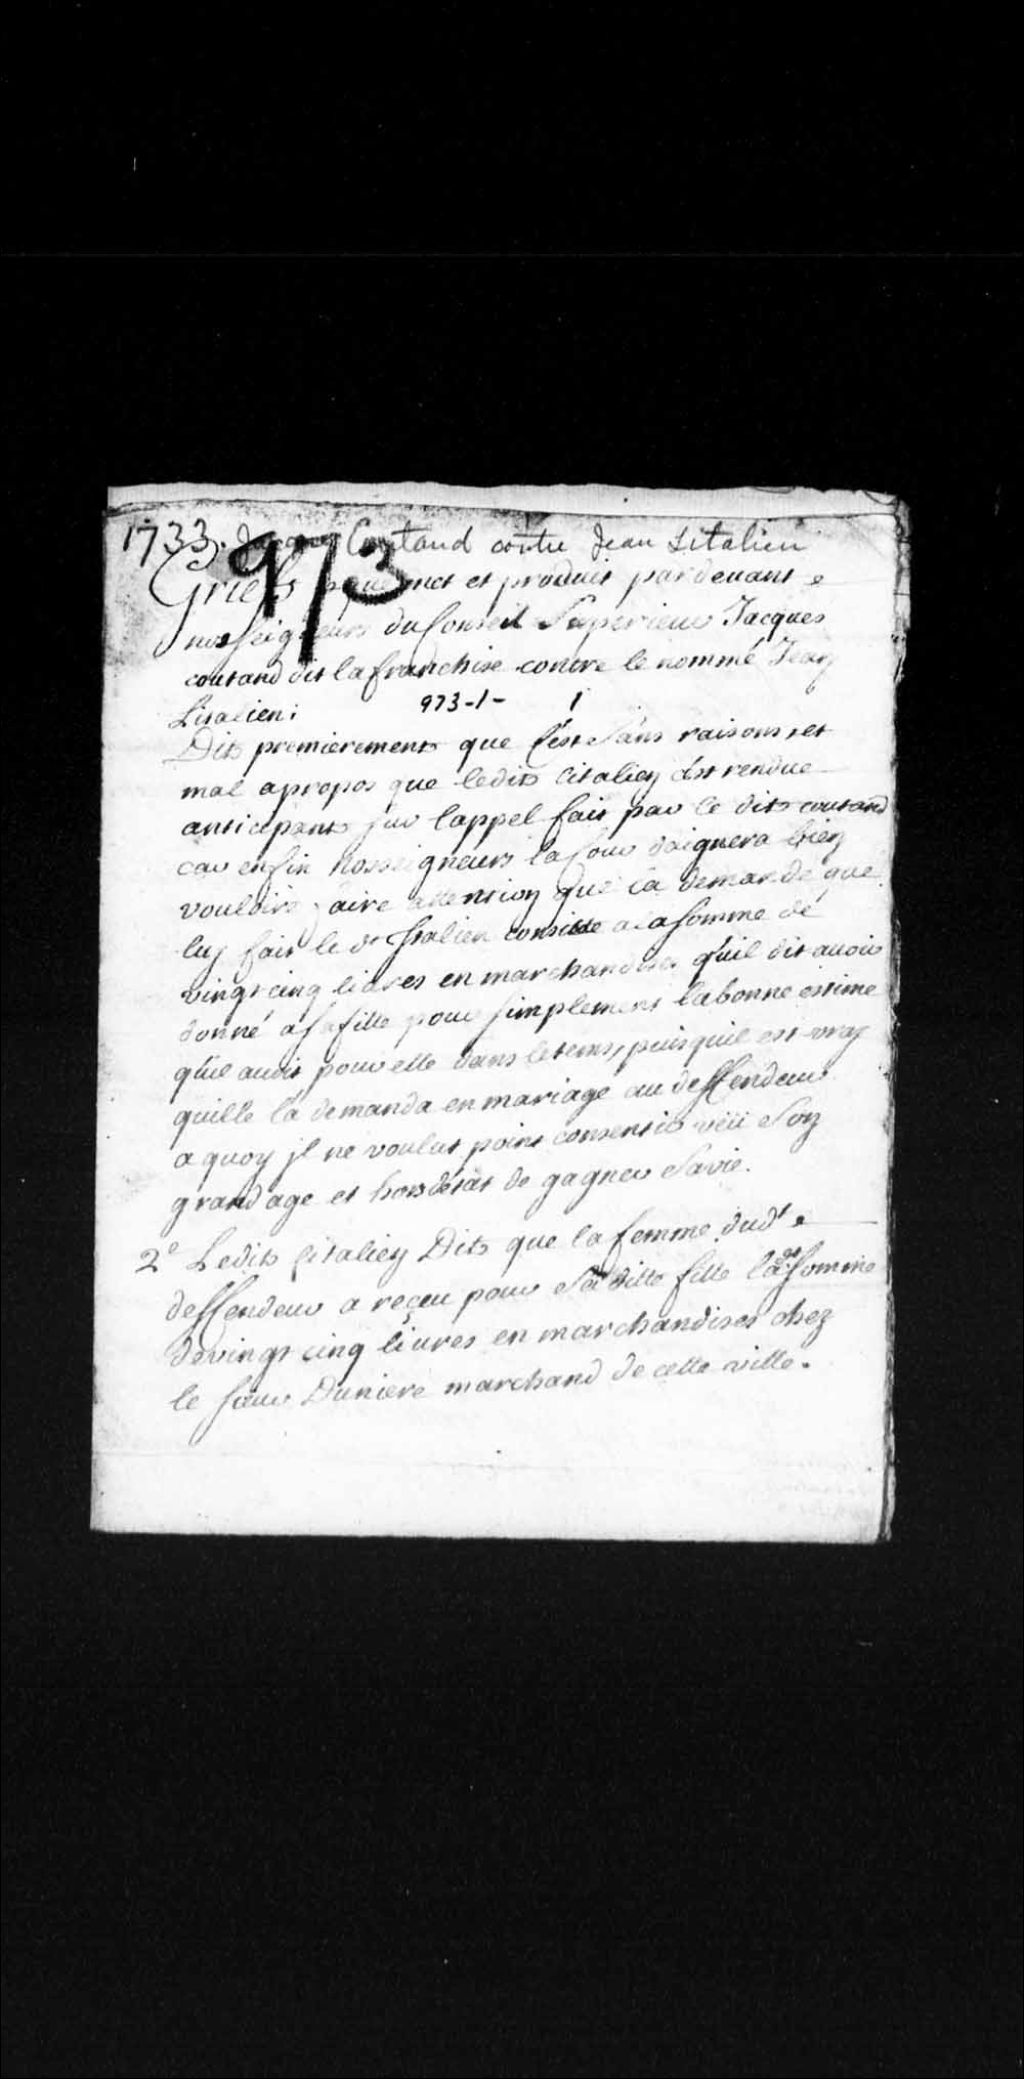 1733. Jacques Coutaud contre Jean Litalien
973
Griefs que met et produit pardevant
nosseigneurs du Conseil Superieur Jacques
coutand dit lafranchise contre le nommé Jean
Litalien:
973-1- 1
Dit premierement que C'est Sans raisons, et
mal apropos que ledit litalien s'est rendue
anticipant sur lappel fait par le dit coutand
car enfin Nosseigneurs la Cour daignera bien
vouloire faire attention que la demande que
luy fait le dt Italien consiste a la somme de
vingt cinq livres en marchandises qu'il dit avoir
donné a sa fille pour simplement la bonne estime
qu'il avoit pour elle dans le tems, puis quil est vray
quille la demanda en mariage au deffendeur
a quoy jl ne voulut point consentir veü Son
grand age et hors detat de gagner Sa vie.
2° Ledit litalien Dit que la femme dudt
deffendeur a reçeu pour Sa ditte fille lade Somme
de vingt cinq livres en marchandises chez
le sieur Duniere marchand de cette ville.